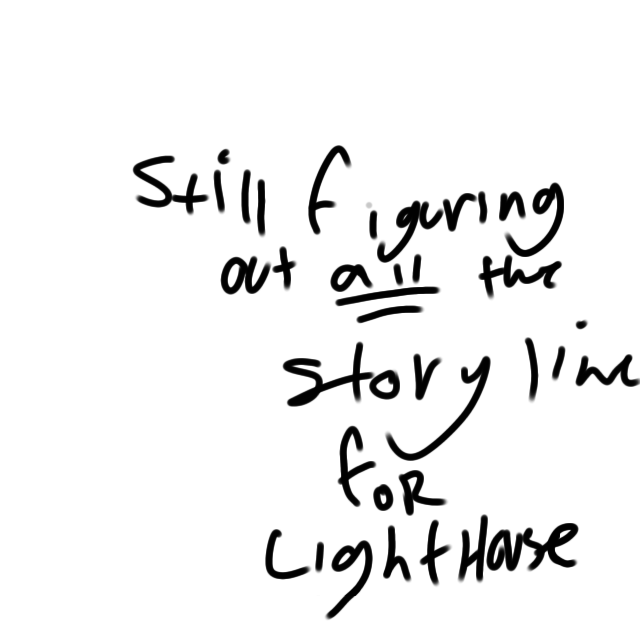 Still figuring
out all the
story line
FOR
LightHouse